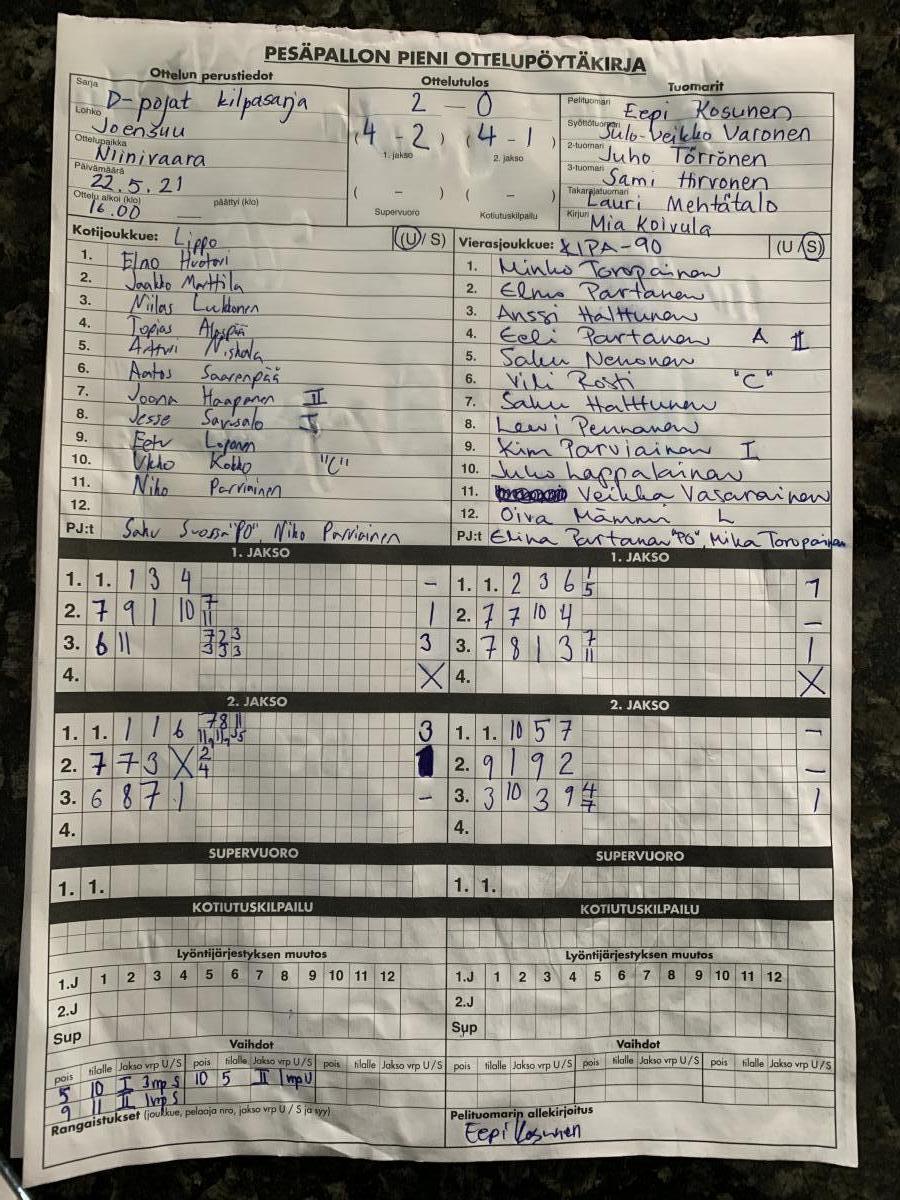 PESÄPALLON PIENI OTTELUPÖYTÄKIRJA
Ottelun perustiedot
Sarja D-pojat kilpasarja
Lohko Joensuu
Ottelupaikka Niinivaara
Päivämäärä 22.5.21
Ottelu alkoi (klo) 16.00 päättyi (klo)
Ottelutulos
2 - 0
(4 - 2) (4 - 1)
1. jakso 2. jakso
( - ) ( - )
Supervuoro Kotiutuskilpailu
Tuomarit
Pelituomari Eepi Kosunen
Syöttötuomari Julo-Veikko Varonen
2-tuomari Juho Törrönen
3-tuomari Sami Hirvonen
Takarajatuomari Lauri Mehtätalo
Kirjuri Mia Koivula
Kotijoukkue: Lippo (U/S)
1. Eino Huotari
2. Jaakko Marttila
3. Niilas Lukkonen
4. Topias
5. Artturi Niskala
6. Aatos Saarenpää
7. Joona Haapanen II
8. Jesse I
9. Eetu
10. Ukko Kokko "C"
11. Niko Parviainen
12.
PJ:t Saku "PO", Niko Parviainen
Vierasjoukkue: KIPA-90 (U/S)
1. Minko Toropainen
2. Elmo Partanen
3. Anssi Halttunen
4. Eeli Partanen A II
5. Saku Nenonen
6. Vili Rosti "C"
7. Saku Halttunen
8. Leevi Pennanen
9. Kim Parviainen I
10. Juho Lappalainen
11. Veikka Vasarainen
12. Oiva Mämmi L
PJ:t Elina Partanen "PO", Mika Toropainen
1. JAKSO
1. 1. 1 3 4 -
2. 7 9 1 10 7 11 1
3. 6 11 7 2 3 3 3 3 3
4. X
1. JAKSO
1. 1. 2 3 6 1 5 1
2. 7 7 10 4 -
3. 7 8 1 3 7 11 1
4. X
2. JAKSO
1. 1. 1 1 6 7 8 11 3
2. 7 7 3 X 2 4 1
3. 6 8 7 1 -
4.
2. JAKSO
1. 1. 10 5 7 -
2. 9 1 9 2 -
3. 3 10 3 9 4 7 1
4.
SUPERVUORO
1. 1.
SUPERVUORO
1. 1.
KOTIUTUSKILPAILU
KOTIUTUSKILPAILU
Lyöntijärjestyksen muutos
1.J 1 2 3 4 5 6 7 8 9 10 11 12
2.J
Sup
Lyöntijärjestyksen muutos
1.J 1 2 3 4 5 6 7 8 9 10 11 12
2.J
Sup
Vaihdot
pois tilalle Jakso vrp U/S pois tilalle Jakso vrp U/S pois tilalle Jakso vrp U/S
5 10 I 3vrp S 10 5 II 1vrp U
9 11 II 1vrp S
Vaihdot
pois tilalle Jakso vrp U/S pois tilalle Jakso vrp U/S pois tilalle Jakso vrp U/S
Rangaistukset (joukkue, pelaaja nro, jakso vrp U / S ja syy)
Pelituomarin allekirjoitus
Eepi Kosunen